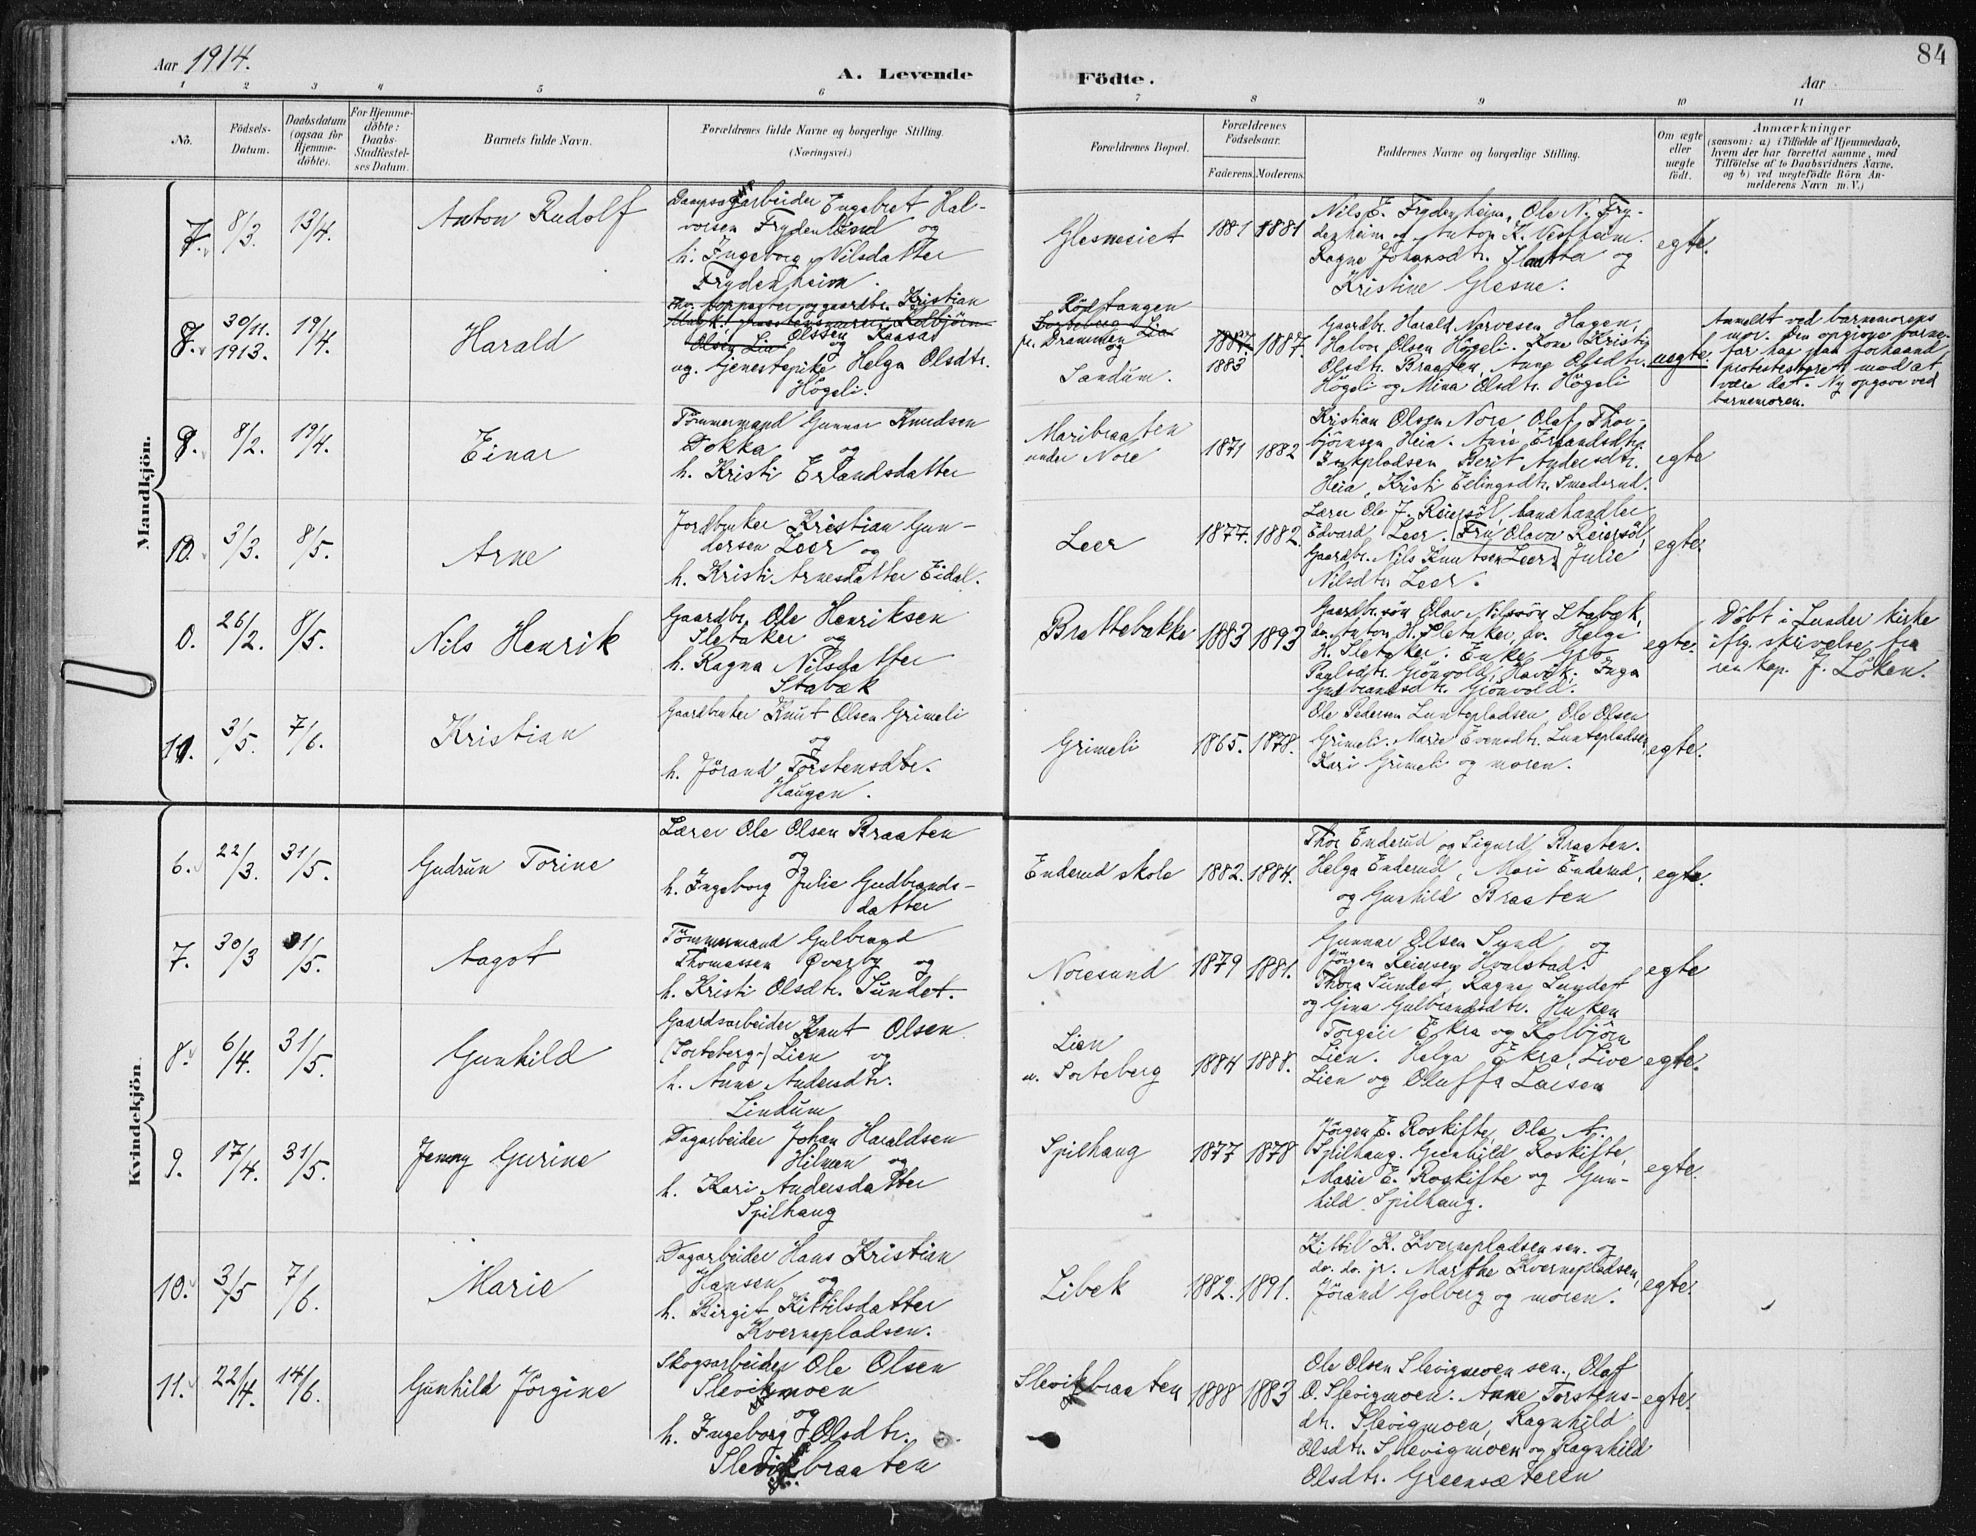 Aar 1914.
A. Levende Födte.
Aar
84
1 2 3 4 5 6 7 8 9 10 11
No.
Födsels-
Datum.
Daabsdatum
(ogsaa for
Hjemme-
döbte).
For Hjemme-
döbte:
Daabs-
Stadfæstel-
ses Datum.
Barnets fulde Navn.
Forældrenes fulde Navne og borgerlige Stilling.
(Næringsvei.)
Forældrenes Bopæl.
Forældrenes
Födselsaar.
Faderens. Moderens.
Faddernes Navne og borgerlige Stilling.
Om ægte
eller
uægte
født.
Anmærkninger
(saasom: a) i Tilfælde af Hjemmedaab,
hvem der har forrettet samme, med
Tilföielse af to Daabsvidners Navne,
og b) ved uægtefödte Börn An-
melderens Navn m. V.)
Mandkjön.
7. 8/3. 13/4. Anton Rudolf
Dampsagarbeider Engebret Hal-
vorsen Frydenlund og
h. Ingeborg Nilsdatter
Frydenheim.
Glesnesiet 1881 1881
Nils E. Frydenheim, Ole N. Fry-
denheim og Anton K. Vestheim.
Ragne Johansdtr. Slaatta og
Kristine Glesne.
egte.
8. 30/11. 1913. 19/4. Harald
og gaardbr. Kristian
Olsen Lia Olssen Kaasas
og
ug. tjenestepike Helga Olsdtr.
Högeli.
Rödtangen
Sorteberg Lia
pr. Drammen
og
Sandum.
1887. 1887.
1883
Gaardbr. Harald Narvesen Hagen,
Halvor Olsen Högeli. Kone Kristi
Olsdtr. Braaten, Anne Olsdtr.
Högeli og Mina Olsdtr. Högeli
uegte.
Anmeldt ved barnemorens
mor. Den opgivne barne-
far har paa forhaand
protestert mod at
være det. Ny opgave ved
barnemoren.
9. 8/2. 19/4. Einar
Tömmermand Gunnar Knudsen
Dokka og
h. Kristi Erlandsdatter
Maribraaten
under Nore
1871 1882
Kristian Olsen Nore, Olaf Thor-
björnsen Heia. Anne Erlandsdtr.
Berit Andersdtr.
Heia, Kristi Ellingsdtr. Smedsrud.
egte
10. 3/3. 8/5. Arne
Jordbruker Kristian Gun-
dersen Leer og
h. Kristi Arnesdatter Eidal.
Leer 1877. 1882.
Lærer Ole J. Reiersöl, handler
Edvard Leer. Fru Olava Reiersöl,
Gaardbr. Nils Knutsen Leer, Julie
Nilsdtr. Leer.
egte.
0. 26/2. 8/5. Nils Henrik
Gaardbr. Ole Henriksen
Sletaker og
h. Ragna Nilsdatter
Stabæk
Brattebakke 1883 1893
Gaardbr.sön Olav Nilssön Stabæk,
do. Anton H. Sletaker, do. Helge
H. Sletaker. Enke Gro
Paulsdtr. Grönvold, Inga
Gulbrandsdtr. Grönvold.
egte.
Döbt i Lunder kirke
iflg. skrivelse fra
res. kap. J. Löken.
11. 3/5. 7/6. Kristian
Gaardbruker Knut Olsen Grimeli
og
h. Jörand Torstensdtr.
Haugen.
Grimeli 1865. 1878.
Ole Pedersen Luntepladsen, Ole Olsen
Grimeli. Marie Evensdtr. Luntepladsen
Kari Grimeli og moren.
egte.
Kvindekjön.
6. 22/3. 31/5. Gudrun Torine
Lærer Ole Olsen Braaten
og
h. Ingeborg Julie Gudbrands-
datter
Enderud skole 1882. 1884.
Thor Enderud og Sigurd Braaten.
Helga Enderud, Mari Enderud,
og Gunhild Braaten
egte.
7. 30/3 31/5. Aagot
Tömmermand Gulbrand
Thomassen Øverby og
h. Kristi Olsdtr. Sundet.
Noresund 1879 1881.
Gunnar Olsen Sund og
Jörgen Reiersen Hvalstad.
Thora Sundet, Ragne Sundet
og Gina Gulbrandsdtr. Huken
egte
8. 6/4. 31/5. Gunhild
Gaardsarbeider Knut Olsen
(Sorteberg-) Lien og
h. Anne Andersdtr.
Lindum
Lien
u. Sorteberg
1884 1888.
Torgeir Ekra og Kolbjörn
Lien. Helga Ekra, Live
Lien og Oluffa Larsen
egte.
9. 17/4. 31/5. Jenny Gurine
Dagarbeider Johan Haraldsen
Hilmen og
h. Kari Andersdatter
Spilhaug
Spilhaug 1877 1878
Jörgen E. Roskifte, Ole A.
Spilhaug. Gunhild Roskifte,
Marie E. Roskifte og Gun-
hild Spilhaug.
egte.
10. 3/5 7/6. Marie
Dagarbeider Hans Kristian
Hansen og
h. Birgit Kittilsdatter
Kvernepladsen.
Libek 1882. 1891.
Kittil K. Kvernepladsen sen. og
do. do. jr. Marthe Kvernepladsen,
Jörand Golberg og moren.
egte.
11. 22/4. 14/6. Gunhild Jörgine
Skogsarbeider Ole Olsen
Slevigmoen
og
h. Ingeborg Olsdtr.
Slevikbraaten
Slevikbraaten 1888 1883
Ole Olsen Slevigmoen sen., Olaf
O. Slevigmoen. Anne Torstens-
dtr. Slevigmoen, Ragnhild
Olsdtr. Slevigmoen og Ragnhild
Olsdtr. Greensæteren
egte.